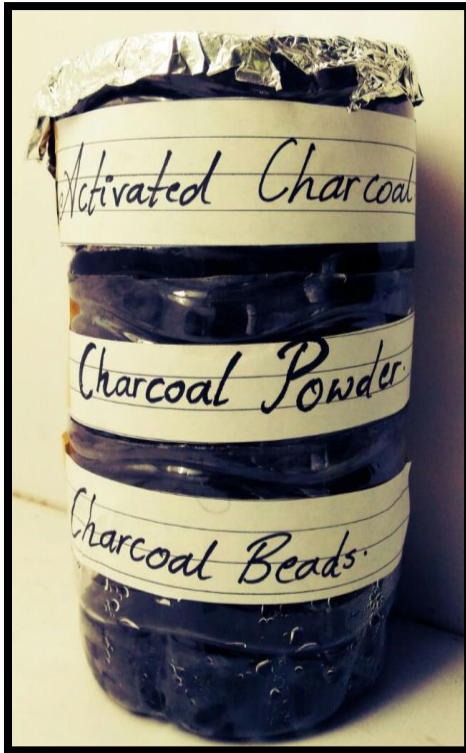 Activated Charcoal
Charcoal Powder.
Charcoal Beads.